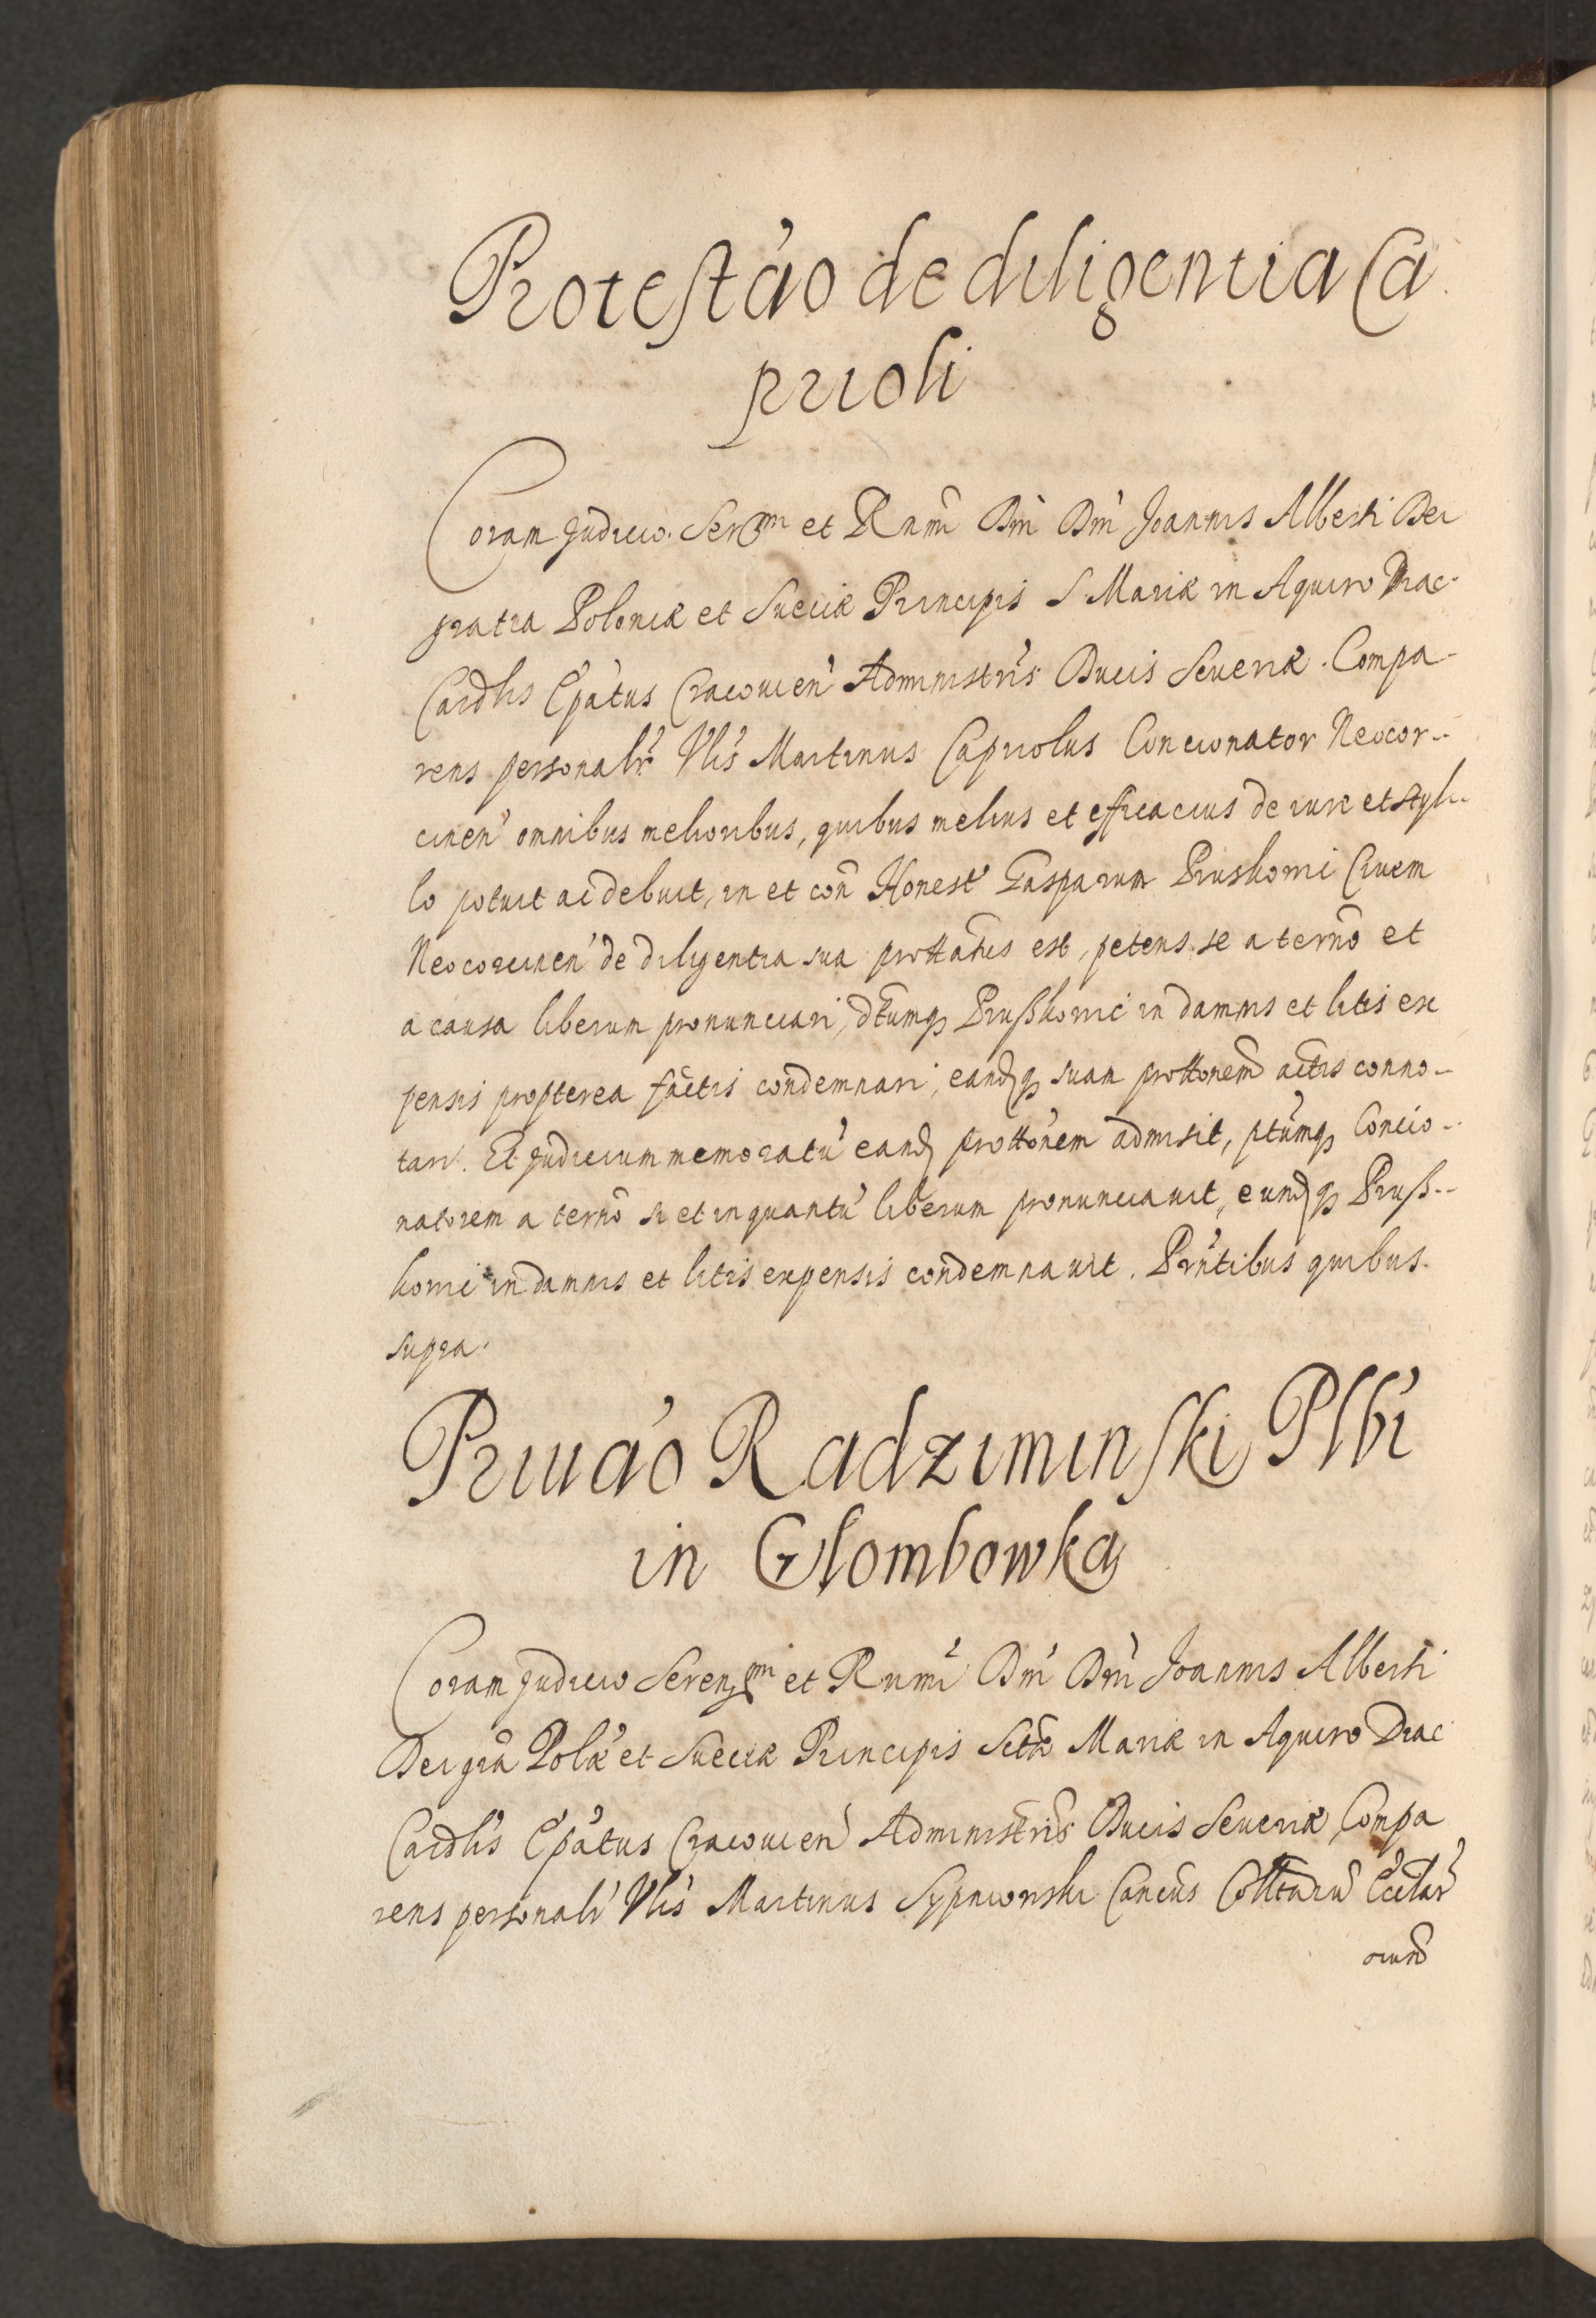 Protestao de diligentia Ca
prioli
Coram Judicio Sermi et Rnmi Dni Dni Joannis Alberti Dei
gratia Poloniæ et Sueciæ Principis S. Mariæ in Aquiro Diac
Cardlis Epatus Cracovien Administris Ducis Severiæ. Compa-
rens personalr Vlis Martinus Capriolus Concionator Neocor-
cinen omnibus melioribus, quibus melius et efficacius de iure et styl-
lo potuit ac debuit, in et con Honest Gasparum Pruskovic Civem
Neocorcinen de diligentia sua prottatus est, petens se a termo et
a causa liberum pronunciari, dtumq Prußkovic in damnis et litis ex
pensis propterea factis condemnari, eandq suam prottonem actis conno-
tari. Et Judicium memoratu eand prottonem admisit, ptumq Concio-
natorem a termo si et inquantu liberum pronunciavit, eundq Pruß-
kovic in damnis et litis expensis condemnavit. Prntibus quibus
supra.
Privao Radziminski Plbi
in Glombowka
Coram Judicio Serenmi et Rnmi Dni Dni Joannis Alberti
Dei gra Polæ et Sueciæ Principis Sctæ Mariæ in Aquiro Diac
Cardlis Epatus Cracovien Administris Ducis Severiæ Compa
rens personalr Vlis Martinus Sypniowski Cancus Colltaru Ecclar
orum